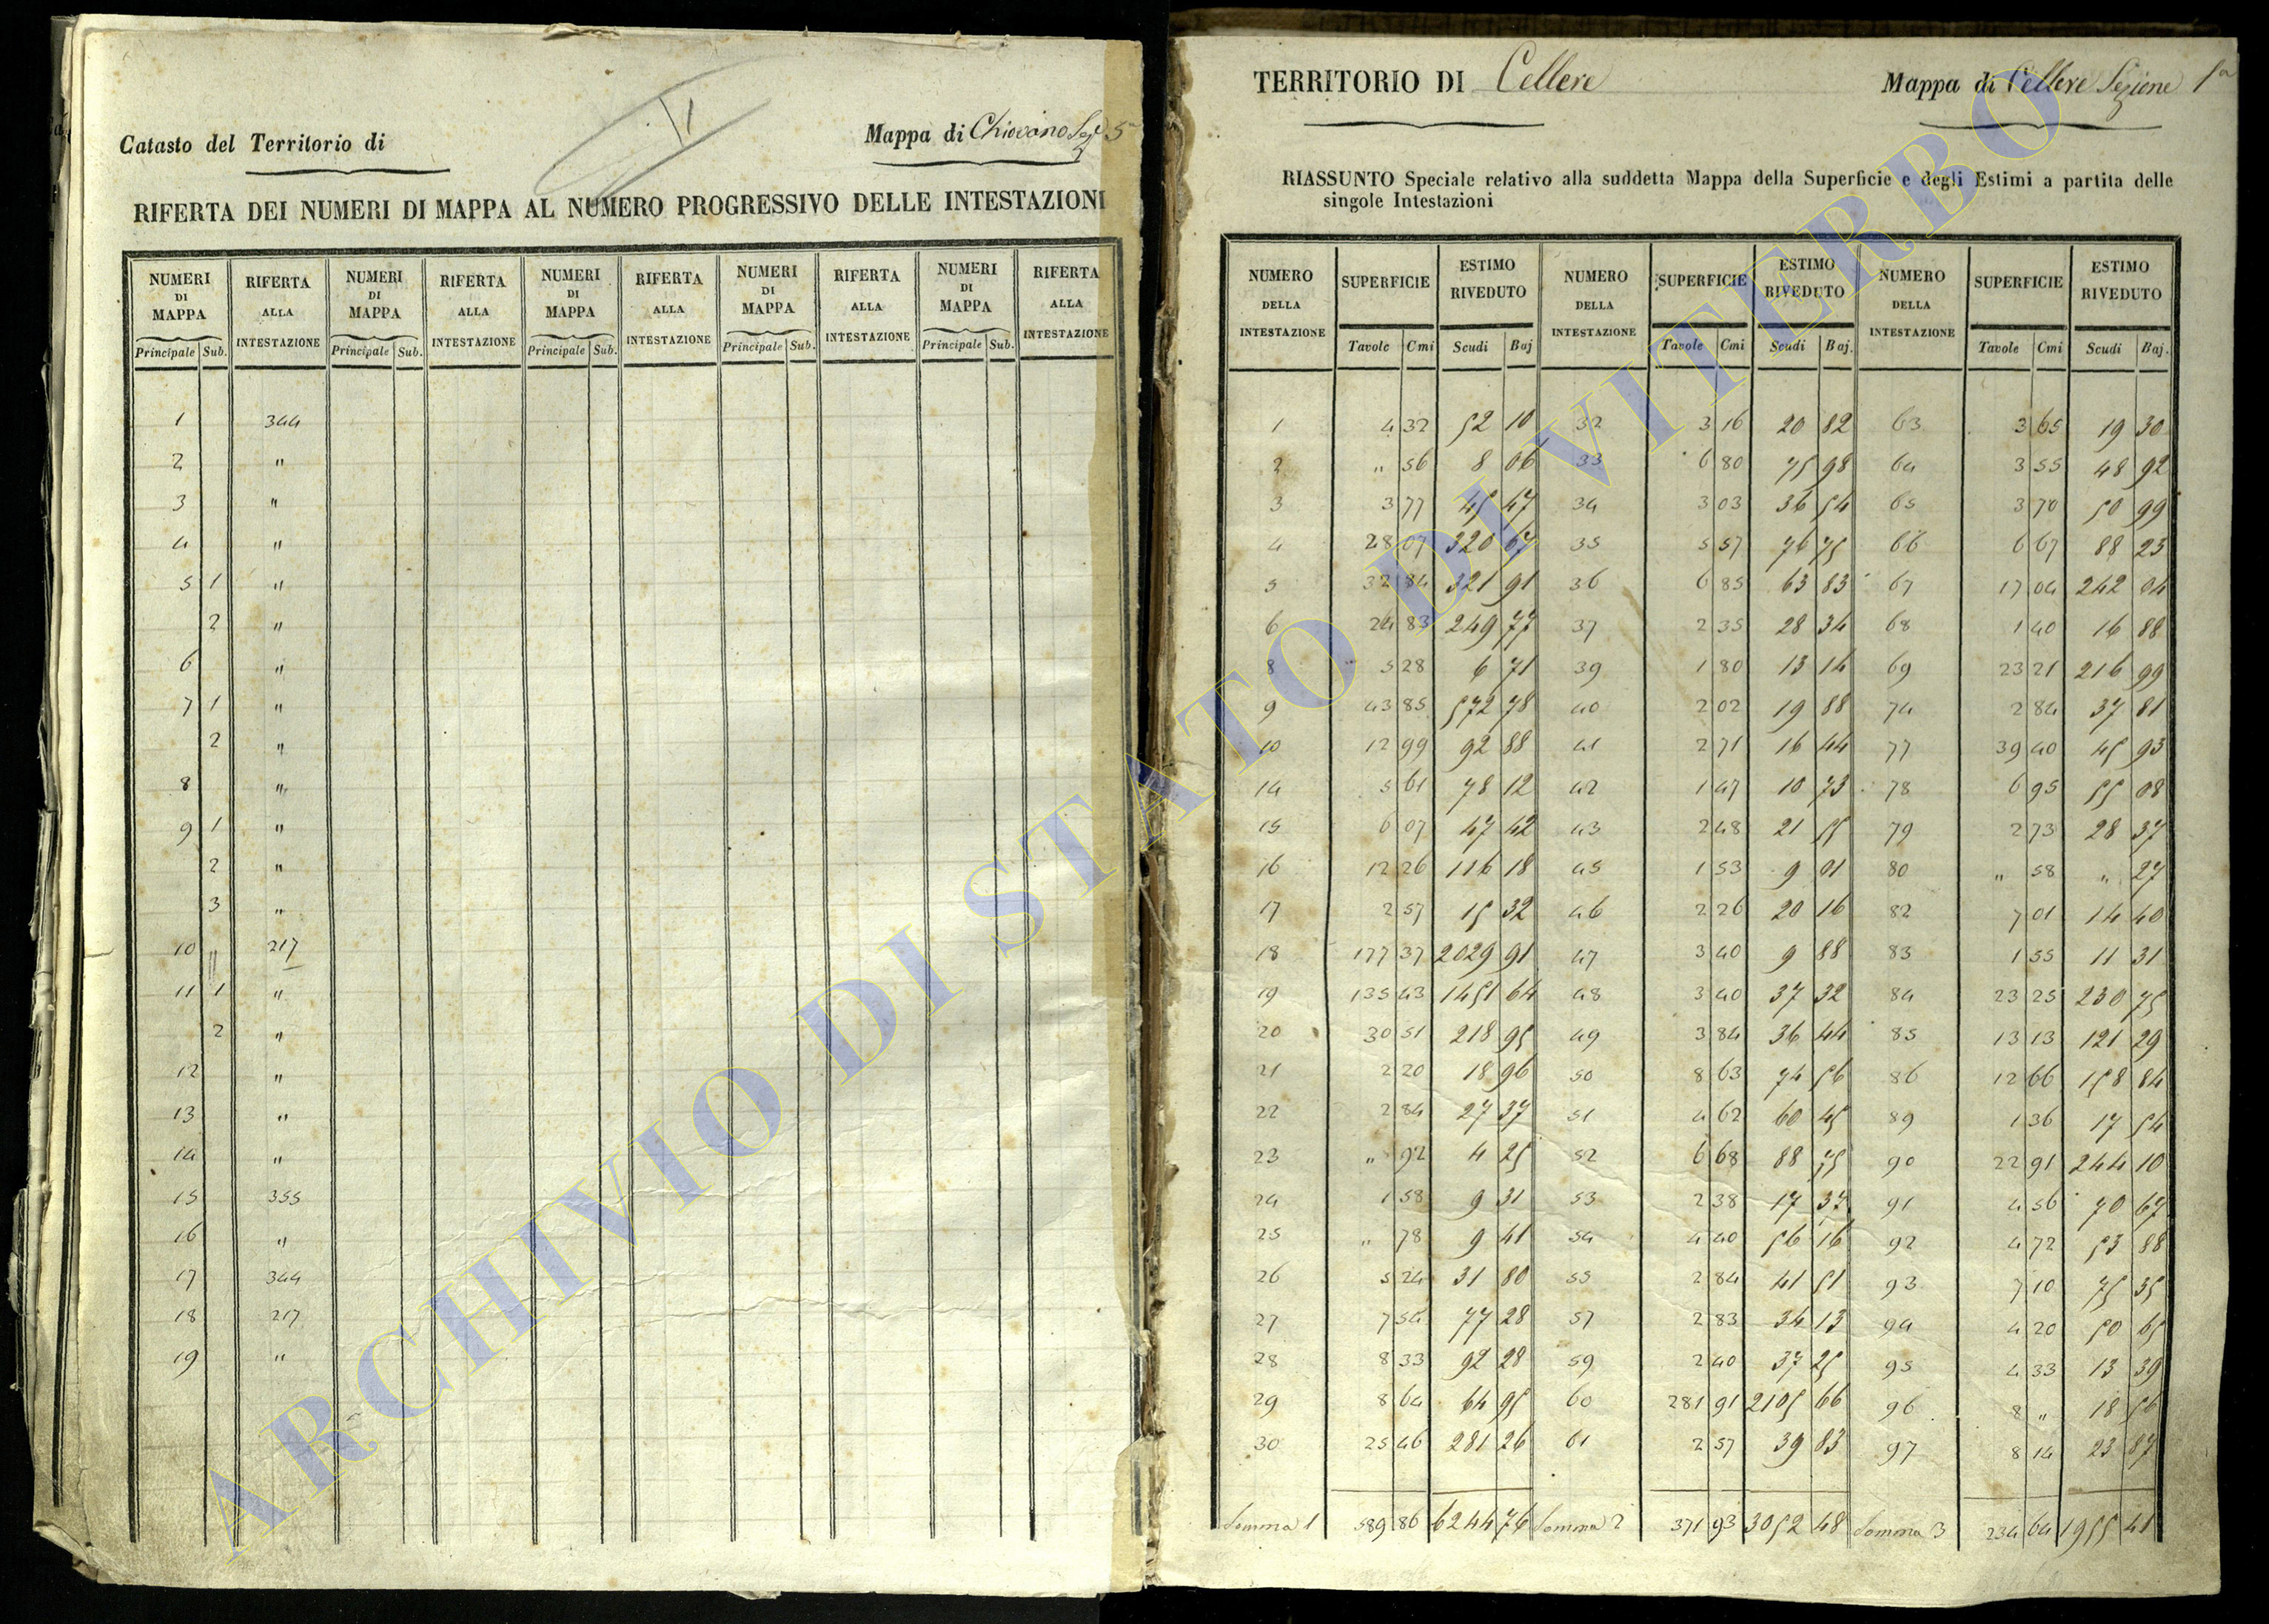 II
Catasto del Territorio di
Mappa di Chiovano Sez. 5ª
RIFERTA DEI NUMERI DI MAPPA AL NUMERO PROGRESSIVO DELLE INTESTAZIONI
NUMERI DI MAPPA RIFERTA ALLA INTESTAZIONE NUMERI DI MAPPA RIFERTA ALLA INTESTAZIONE NUMERI DI MAPPA RIFERTA ALLA INTESTAZIONE NUMERI DI MAPPA RIFERTA ALLA INTESTAZIONE NUMERI DI MAPPA RIFERTA ALLA INTESTAZIONE
Principale Sub. Principale Sub. Principale Sub. Principale Sub. Principale Sub.
1 344
2 "
3 "
4 "
5 1 "
2 "
6 "
7 1 "
2 "
8 "
9 1 "
2 "
3 "
10 " 217
11 1 "
2 "
12 "
13 "
14 "
15 355
16 "
17 344
18 217
19 "
TERRITORIO DI Cellere
Mappa di Cellere Sezione 1ª
RIASSUNTO Speciale relativo alla suddetta Mappa della Superficie e degli Estimi a partita delle
singole Intestazioni
NUMERO DELLA INTESTAZIONE SUPERFICIE ESTIMO RIVEDUTO NUMERO DELLA INTESTAZIONE SUPERFICIE ESTIMO RIVEDUTO NUMERO DELLA INTESTAZIONE SUPERFICIE ESTIMO RIVEDUTO
Tavole Cmi Scudi Baj Tavole Cmi Scudi Baj. Tavole Cmi Scudi Baj.
1 4 32 52 10 32 3 16 20 82 63 3 65 19 30
2 " 56 8 06 33 6 80 75 98 64 3 55 48 92
3 3 77 45 47 34 3 03 36 54 65 3 70 50 99
4 28 07 320 67 35 5 57 76 75 66 6 67 88 23
5 32 84 321 91 36 6 85 63 83 67 17 04 242 04
6 24 83 249 77 37 2 35 28 34 68 1 40 16 88
8 5 28 6 71 39 1 80 13 14 69 23 21 216 99
9 43 85 572 78 40 2 02 19 88 74 2 84 37 81
10 12 99 92 88 41 2 71 16 44 77 39 40 45 93
14 5 61 78 12 42 1 47 10 73 78 6 95 55 08
15 6 07 47 42 43 2 48 21 55 79 2 73 28 37
16 12 26 116 18 45 1 53 9 01 80 " 58 " 27
17 2 57 15 32 46 2 26 20 16 82 7 01 14 40
18 177 37 2029 91 47 3 40 9 88 83 1 55 11 31
19 135 43 1451 64 48 3 40 37 32 84 23 25 230 75
20 30 51 218 95 49 3 84 36 44 85 13 13 121 29
21 2 20 18 96 50 8 63 74 56 86 12 66 158 84
22 2 84 27 37 51 4 62 60 45 89 1 36 17 54
23 " 92 4 25 52 6 68 88 75 90 22 91 244 10
24 1 58 9 31 53 2 38 17 37 91 4 56 70 67
25 " 78 9 41 54 4 40 56 16 92 4 72 53 88
26 5 24 31 80 55 2 84 41 51 93 7 10 75 35
27 7 54 77 28 57 2 83 34 13 94 4 20 50 65
28 8 33 92 28 59 2 40 37 25 95 4 33 13 39
29 8 64 64 95 60 281 91 2105 66 96 8 " 18 56
30 25 46 281 26 61 2 57 39 83 97 8 14 23 87
Somma 1 589 86 6244 76 Somma 2 371 93 3052 48 Somma 3 234 64 1955 41
ARCHIVIO DI STATO DI VITERBO